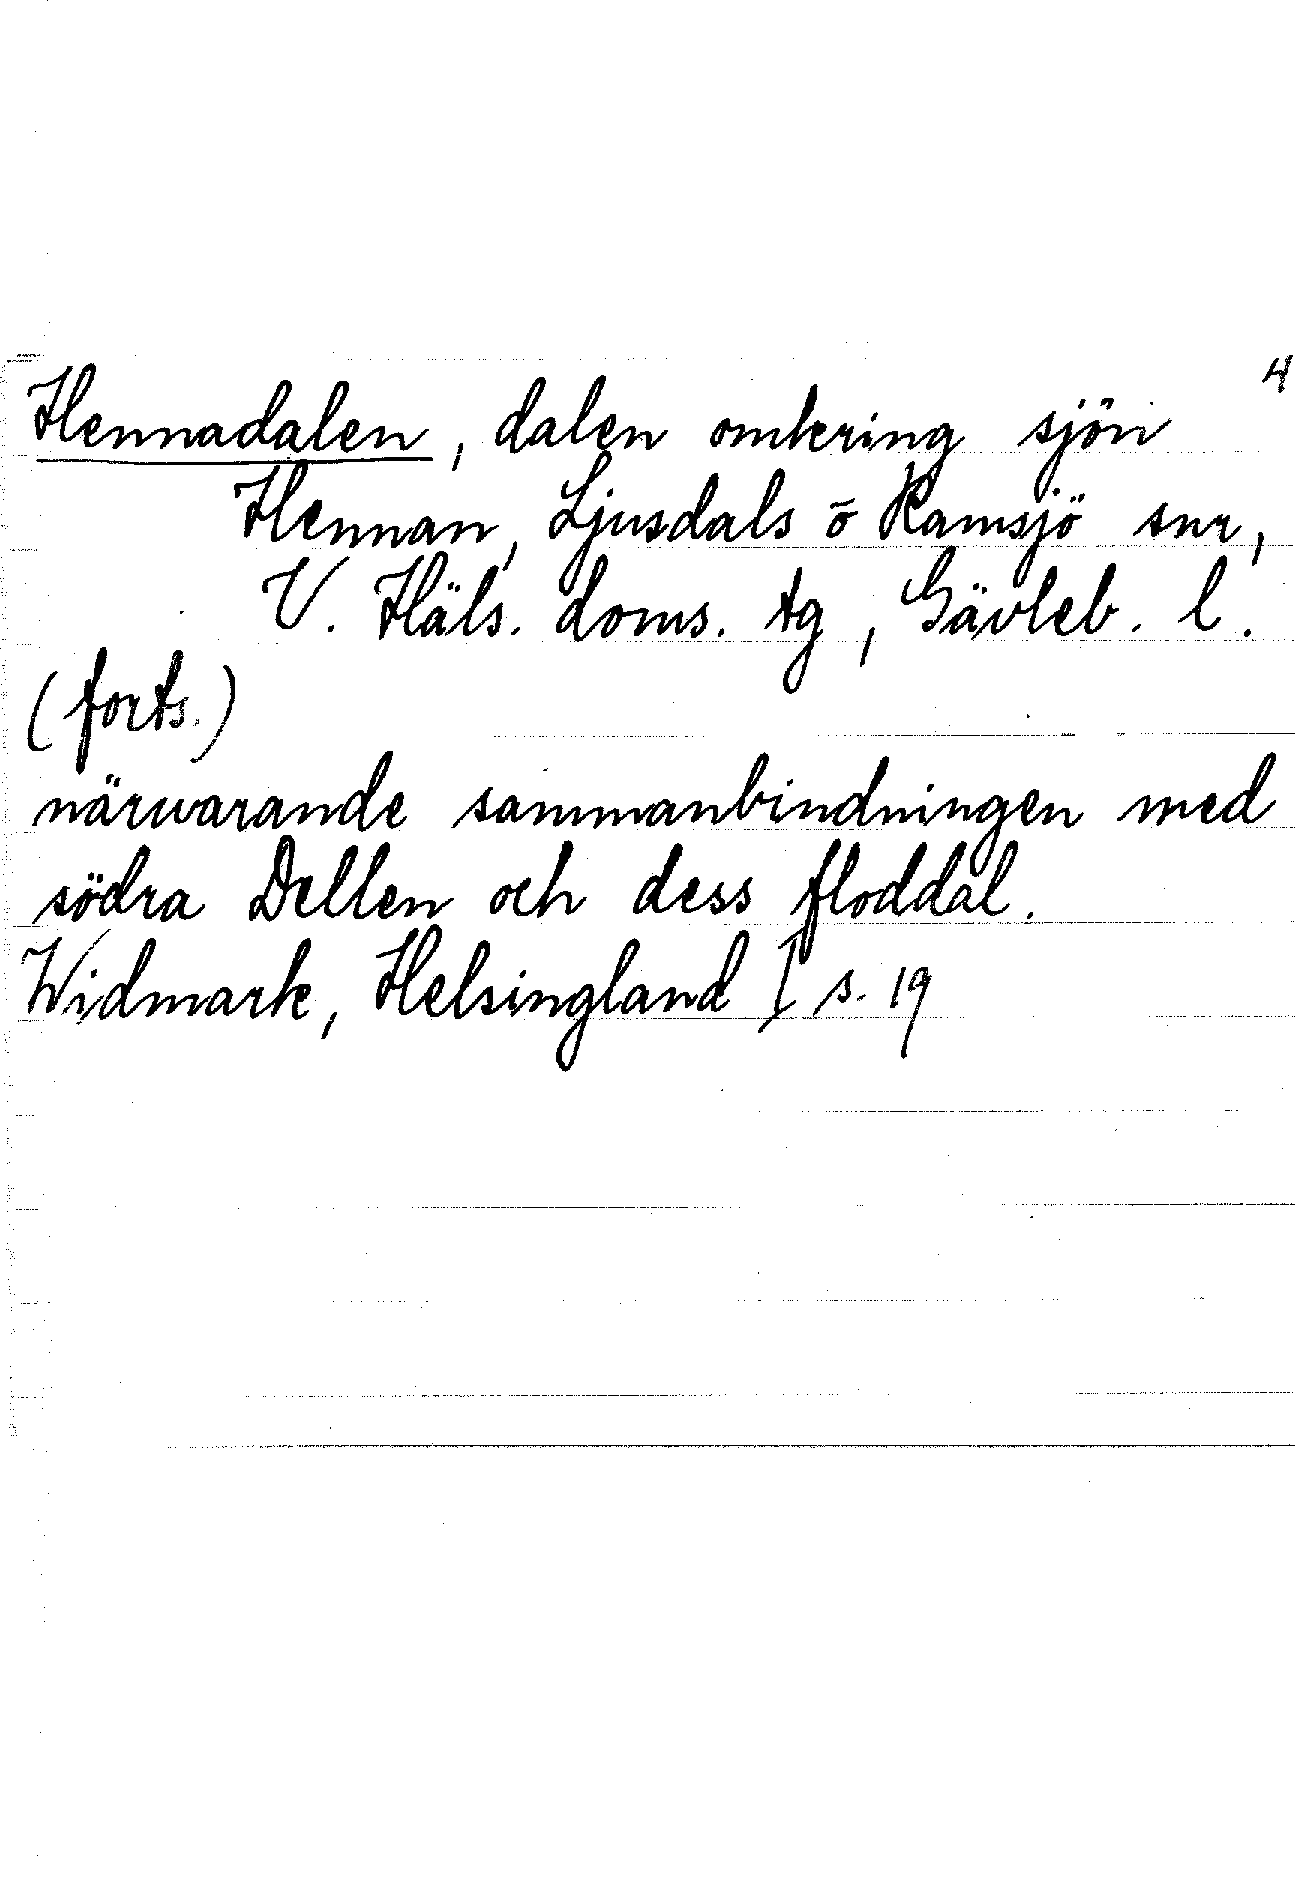 4
Hennadalen, dalen omkring sjön
Hennan, Ljusdals o Ramsjö snr,
V. Häls. doms. tg, Gävleb. l.
(forts.)
närwarande sammanbindningen med
södra Dellen och dess floddal.
Widmark, Helsingland I s. 19